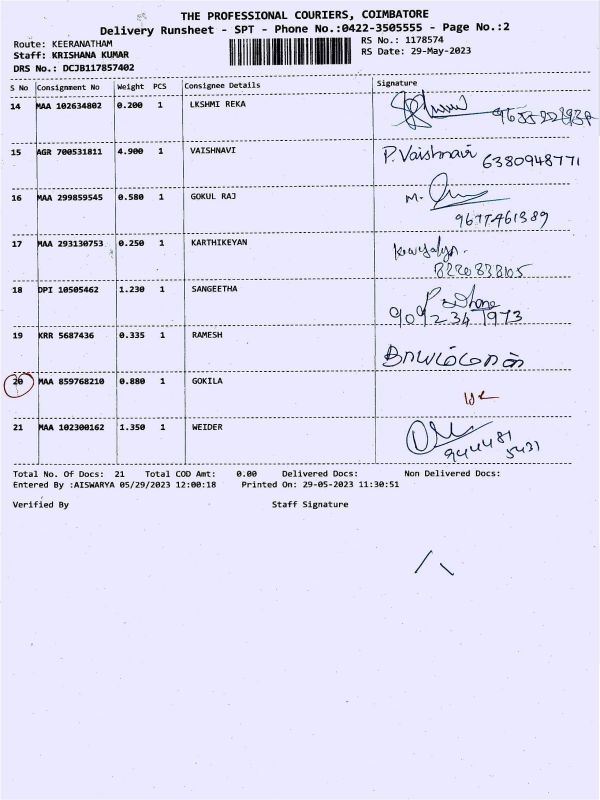 THE PROFESSIONAL COURIERS, COIMBATORE
Delivery Runsheet - SPT - Phone No.:0422-3505555 - Page No.:2
Route: KEERANATHAM
RS No.: 1178574
Staff: KRISHANA KUMAR
RS Date: 29-May-2023
DRS No.: DCJB117857402
S No Consignment No Weight PCS Consignee Details Signature
14 MAA 102634802 0.200 1 LKSHMI REKA
15 AGR 700531811 4.900 1 VAISHNAVI P. Vaishnavi 6380948771
16 MAA 299859545 0.580 1 GOKUL RAJ M.
9677461389
17 MAA 293130753 0.250 1 KARTHIKEYAN
8220838105
18 DPI 10505462 1.230 1 SANGEETHA
9092341973
19 KRR 5687436 0.335 1 RAMESH
20 MAA 859768210 0.880 1 GOKILA
21 MAA 102300162 1.350 1 WEIDER
944481
5431
Total No. Of Docs: 21 Total COD Amt: 0.00 Delivered Docs: Non Delivered Docs:
Entered By :AISWARYA 05/29/2023 12:00:18 Printed On: 29-05-2023 11:30:51
Verified By Staff Signature